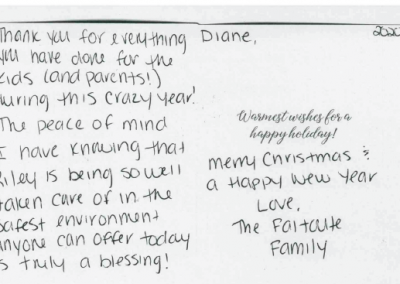 Diane,
2020
Thank you for everything
you have done for the
kids (and parents!)
during this crazy year!
The peace of mind
I have knowing that
Riley is being so well
taken care of in the
safest environment
anyone can offer today
is truly a blessing!
Warmest wishes for a
happy holiday!
Merry Christmas &
a Happy New Year
Love,
The Faitoute
Family